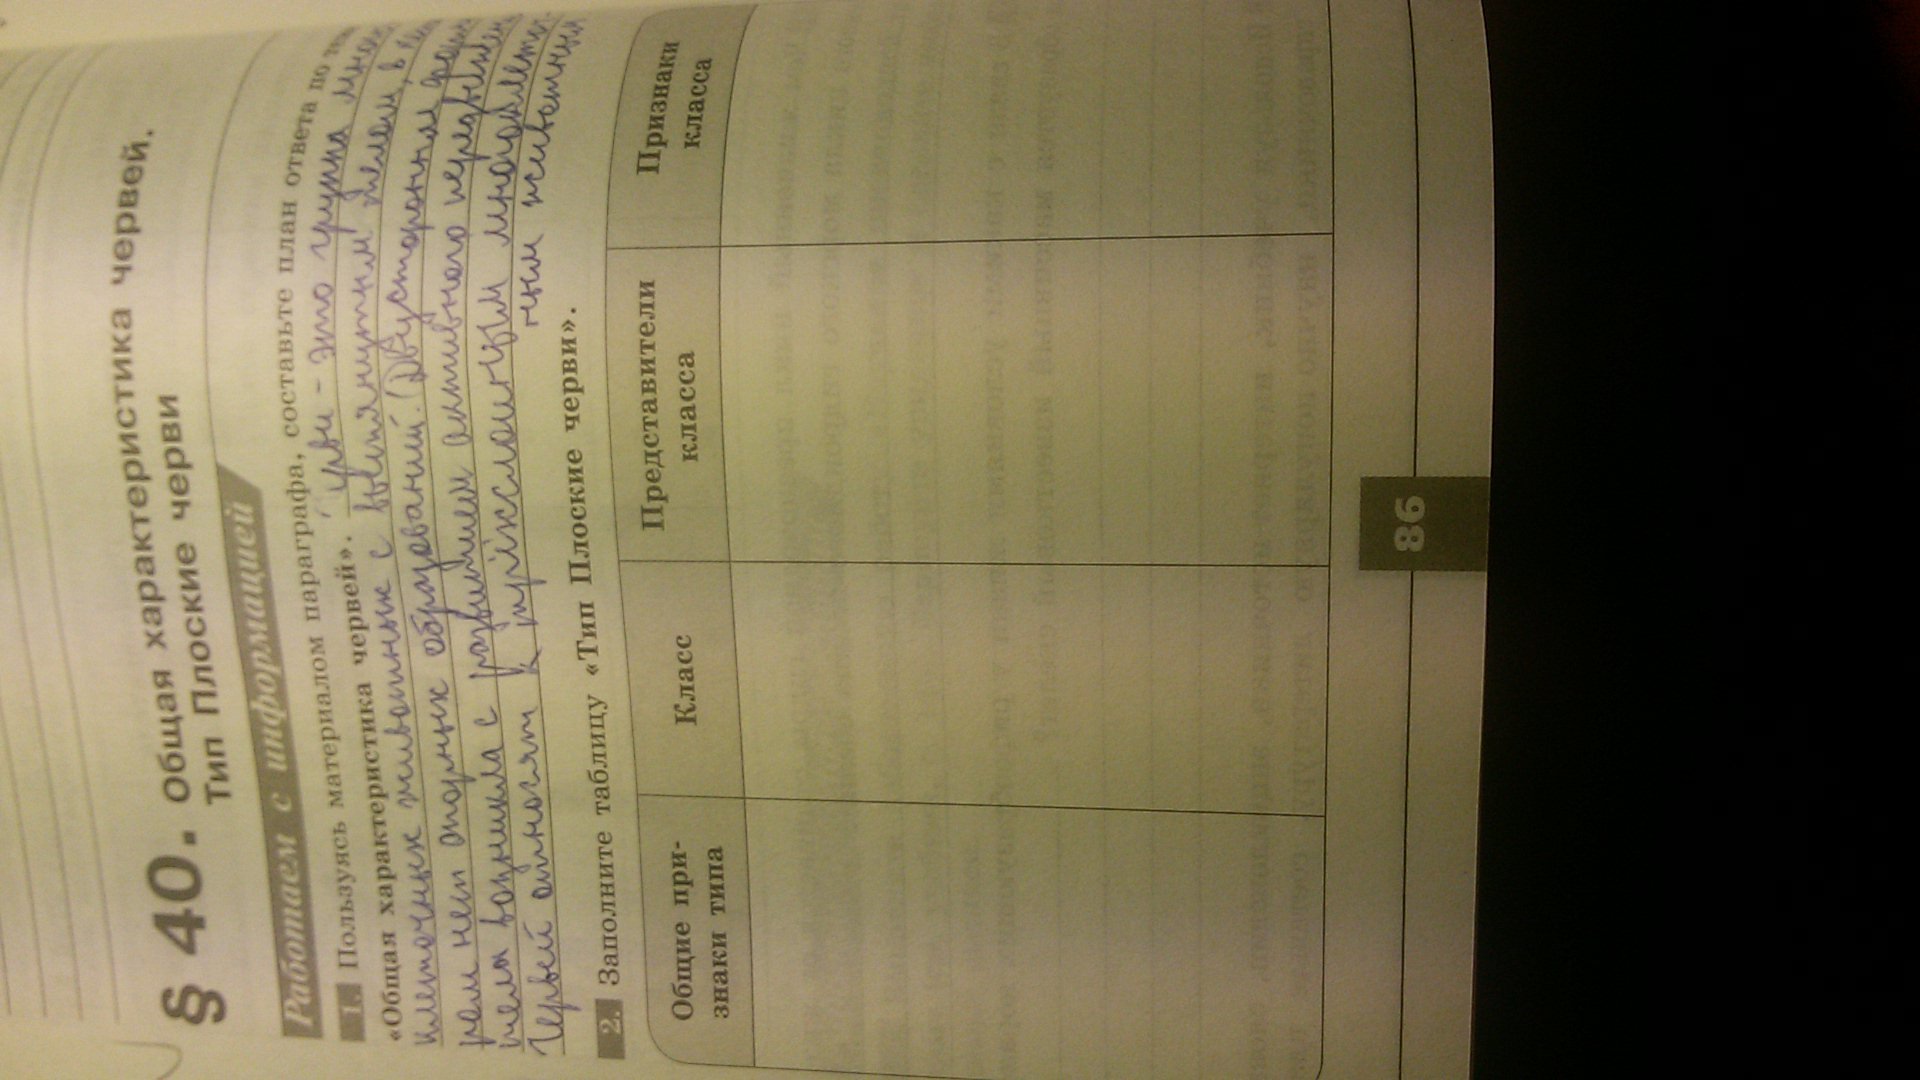 § 40. Общая характеристика червей.
Тип Плоские черви
Работаем с информацией
1. Пользуясь материалом параграфа, составьте план ответа по
«Общая характеристика червей». Черви - это группа много
клеточных животных с вытянутым телом, в
ром нет опорных образований. (Двусторонняя
тела возникла с развитием активного передвижен
Червей относят к трёхслойным многоклеточ-
ным животным
2. Заполните таблицу «Тип Плоские черви».
Общие при-
знаки типа
Класс
Представители
класса
Признаки
класса
86